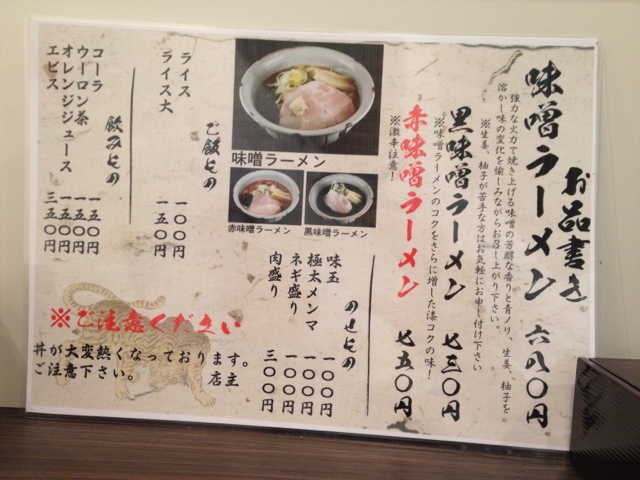 お品書き
味噌ラーメン 六八〇円
強力な火力で焼き上げる味噌の芳醇な香りと青ノリ、生姜、柚子を
溶かし味の変化を愉しみながらお召し上がり下さい。
※生姜、柚子が苦手な方はお気軽にお申し付け下さい
黒味噌ラーメン 七三〇円
※味噌ラーメンのコクをさらに増した漆コクの味!
赤味噌ラーメン 七五〇円
※激辛注意!
味噌ラーメン
赤味噌ラーメン
黒味噌ラーメン
のせもの
味玉 一〇〇円
極太メンマ 一〇〇円
ネギ盛り 一〇〇円
肉盛り 三〇〇円
ご飯もの
ライス 一〇〇円
ライス大 一五〇円
飲みもの
コーラ 一五〇円
ウーロン茶 一五〇円
オレンジジュース 一五〇円
エビス 三五〇円
※ご注意ください
丼が大変熱くなっております。
ご注意下さい。 店主